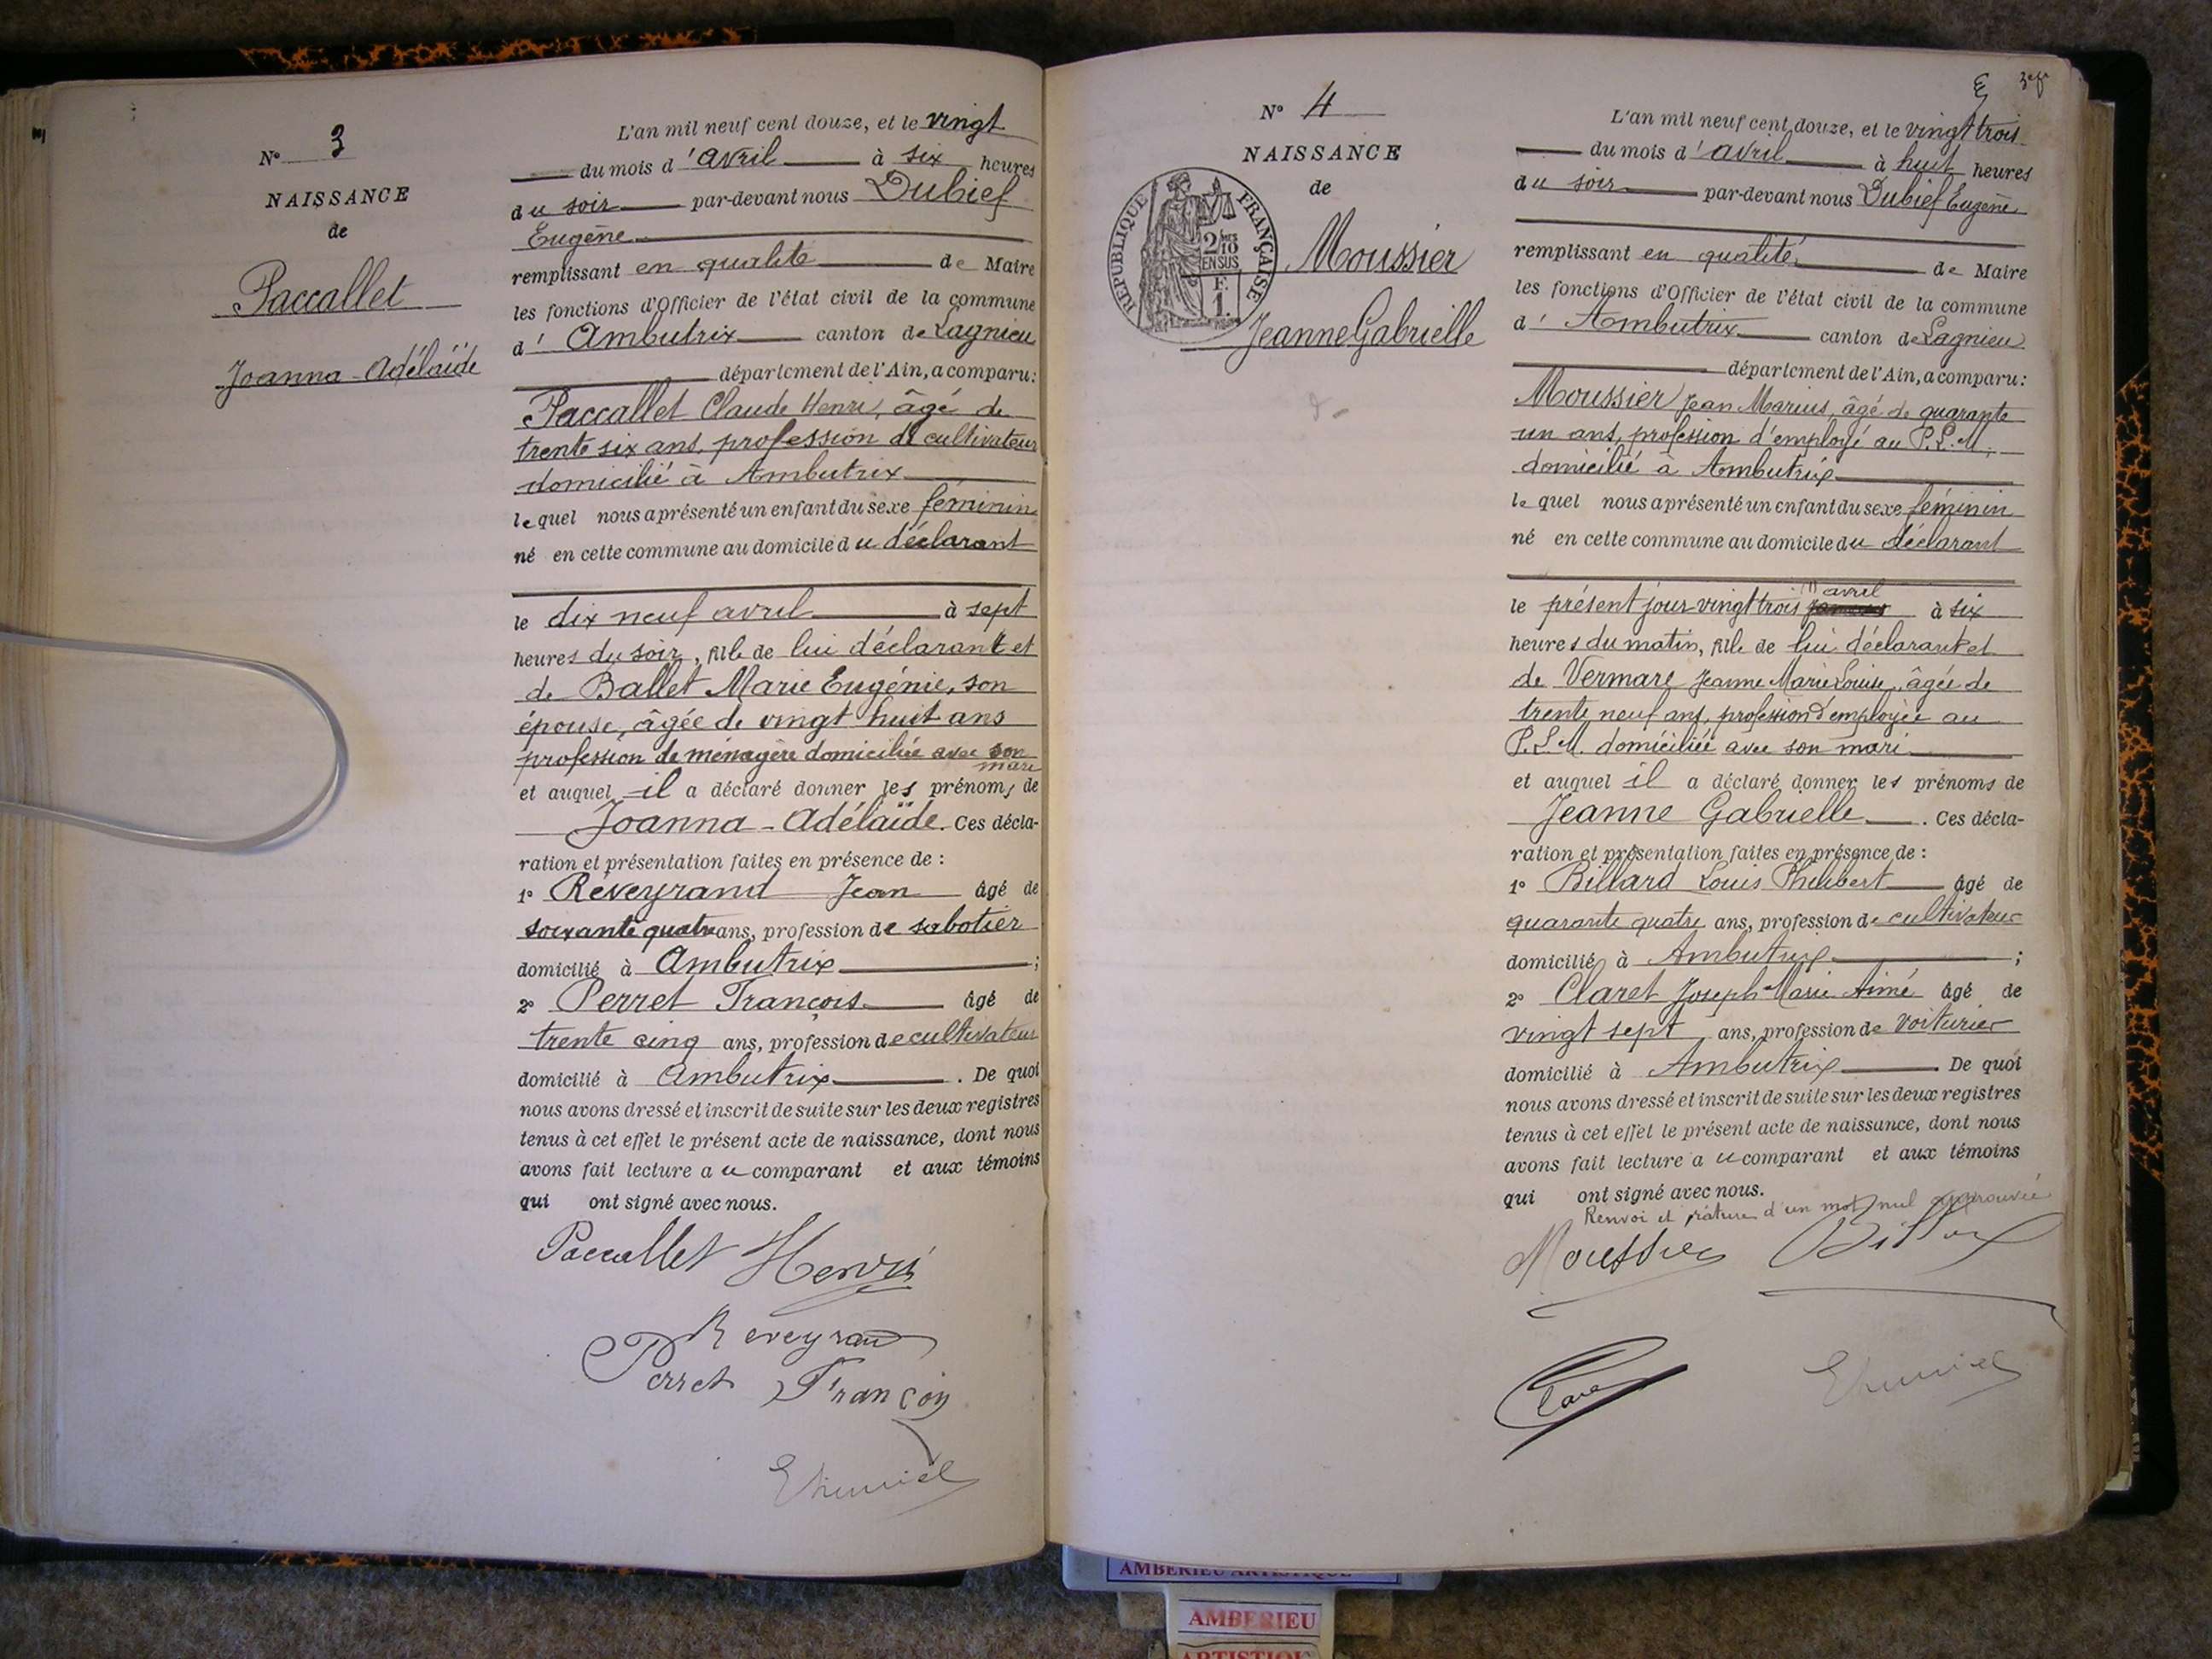 N° 3
NAISSANCE
de
Paccallet
Joanna-Adélaïde
L'an mil neuf cent douze, et le vingt
du mois d'avril à six heures
du soir par-devant nous Dubief
Eugène
remplissant en qualité de Maire
les fonctions d'Officier de l'état civil de la commune
d'Ambutrix canton de Lagnieu
département de l'Ain, a comparu:
Paccallet Claude Henri, âgé de
trente six ans, profession de cultivateur
domicilié à Ambutrix
lequel nous a présenté un enfant du sexe féminin
né en cette commune au domicile du déclarant
le dix neuf avril à sept
heures du soir, fille de lui déclarant et
de Ballet Marie Eugénie, son
épouse, âgée de vingt huit ans
profession de ménagère domiciliée avec son
mari
et auquel il a déclaré donner les prénoms de
Joanna-Adélaïde. Ces décla-
ration et présentation faites en présence de :
1° Reveyrand Jean âgé de
soixante quatre ans, profession de sabotier
domicilié à Ambutrix ;
2° Perret François âgé de
trente cinq ans, profession de cultivateur
domicilié à Ambutrix . De quoi
nous avons dressé et inscrit de suite sur les deux registres
tenus à cet effet le présent acte de naissance, dont nous
avons fait lecture au comparant et aux témoins
qui ont signé avec nous.
Paccallet Henri
Reveyrand
Perret François
N° 4
NAISSANCE
de
RÉPUBLIQUE FRANÇAISE
2/10
EN SUS
F.
1.
Moussier
Jeanne Gabrielle
L'an mil neuf cent douze, et le vingt trois
du mois d'avril à huit heures
du soir par-devant nous Dubief Eugène
remplissant en qualité de Maire
les fonctions d'Officier de l'état civil de la commune
d'Ambutrix canton de Lagnieu
département de l'Ain, a comparu:
Moussier Jean Marius, âgé de quarante
un ans, profession d'employé au P.L.M,
domicilié à Ambutrix
lequel nous a présenté un enfant du sexe féminin
né en cette commune au domicile du déclarant
avril
le présent jour vingt trois à six
heures du matin, fille de lui déclarant et
de Vermare Jeanne Marie Louise, âgée de
trente neuf ans, profession d'employée au
P.L.M. domiciliée avec son mari
et auquel il a déclaré donner les prénoms de
Jeanne Gabrielle . Ces décla-
ration et présentation faites en présence de :
1° Billard Louis Philibert âgé de
quarante quatre ans, profession de cultivateur
domicilié à Ambutrix ;
2° Claret Joseph Marie Aimé âgé de
vingt sept ans, profession de voiturier
domicilié à Ambutrix De quoi
nous avons dressé et inscrit de suite sur les deux registres
tenus à cet effet le présent acte de naissance, dont nous
avons fait lecture au comparant et aux témoins
qui ont signé avec nous.
Renvoi et rature d'un mot nul approuvée
Moussier Billard
Claret
AMBERIEU ARTISTIQUE
AMBERIEU